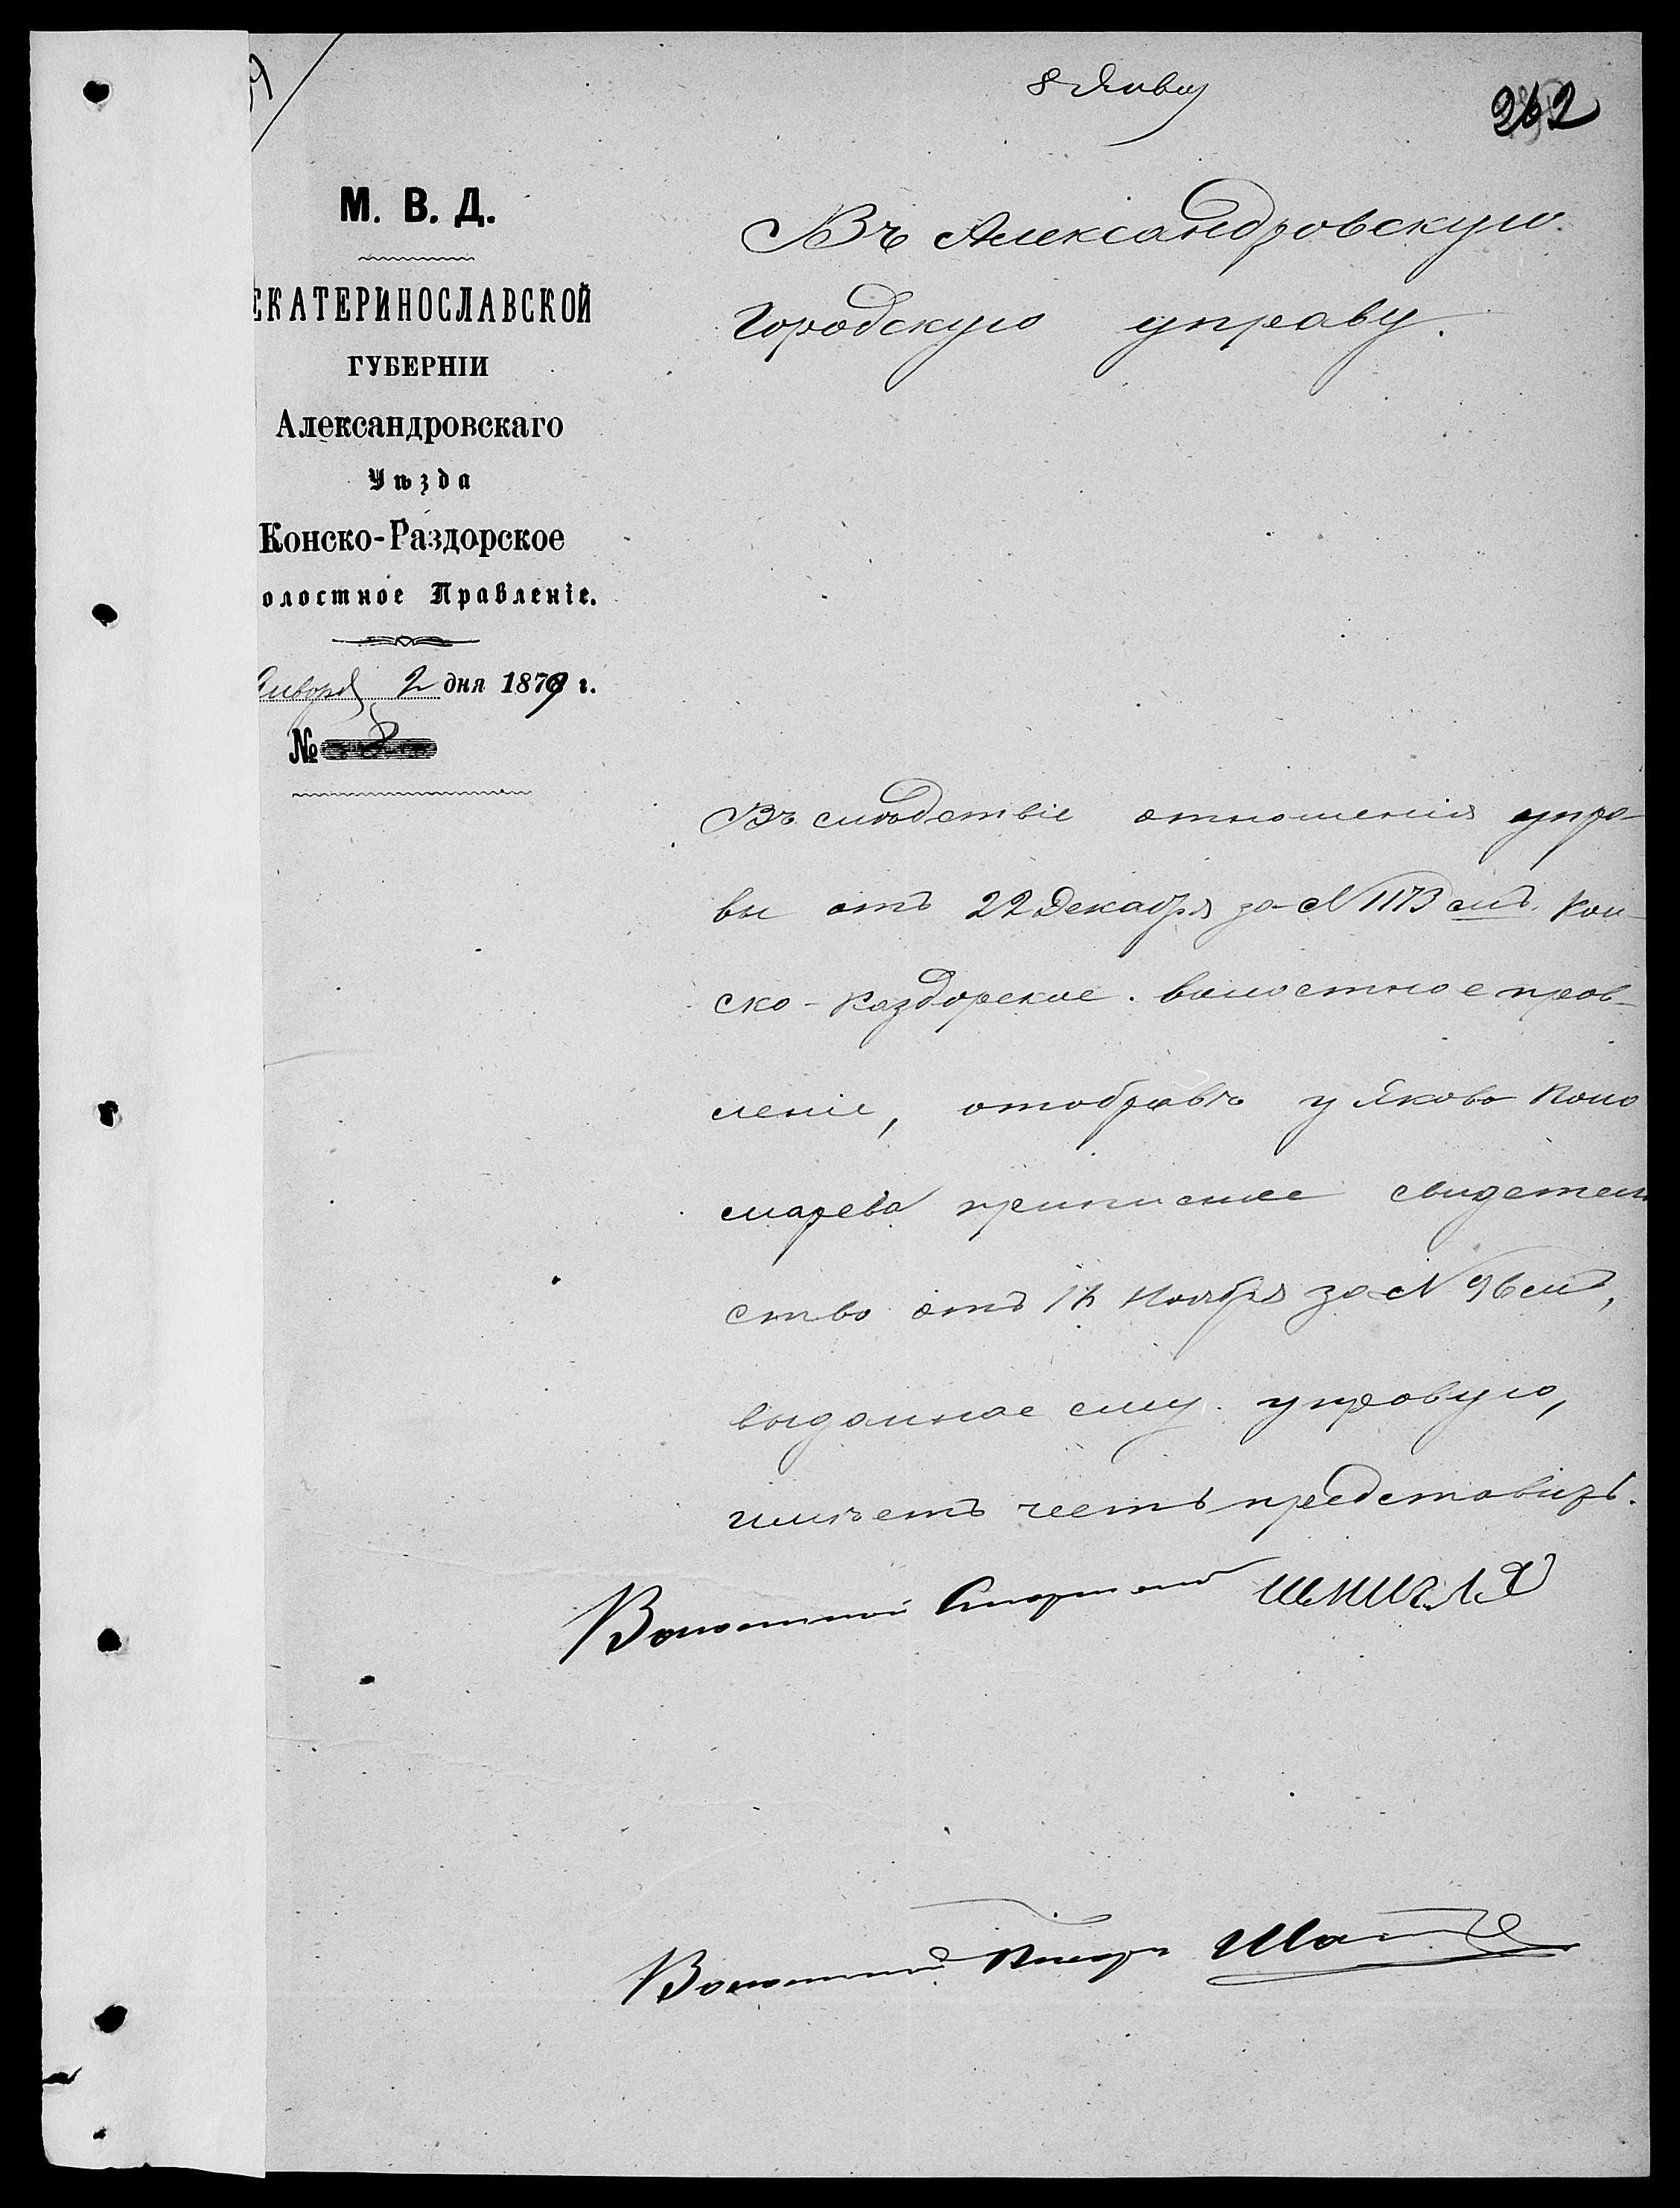 8 Янвая
262
М. В. Д.
ЕКАТЕРИНОСЛАВСКОЙ
ГУБЕРНІИ
Александровскаго
Уѣзда
Конско-Раздорское
олостное Правленіе.
Января 2 дня 1879 г.
№
Въ Александровскую
Городскую управу.
Въ слѣдствіе отношенія упра-
вы отъ 22 Декабря за N 1173 Кон-
ско-Раздорское волостное прав-
леніе, отобравъ у Якова Поно
марева приписное свидетель
ство отъ Ноября за N 96
выданное ему управую,
имѣетъ честь представить.
Волостной Старшина
Волостной Писарь